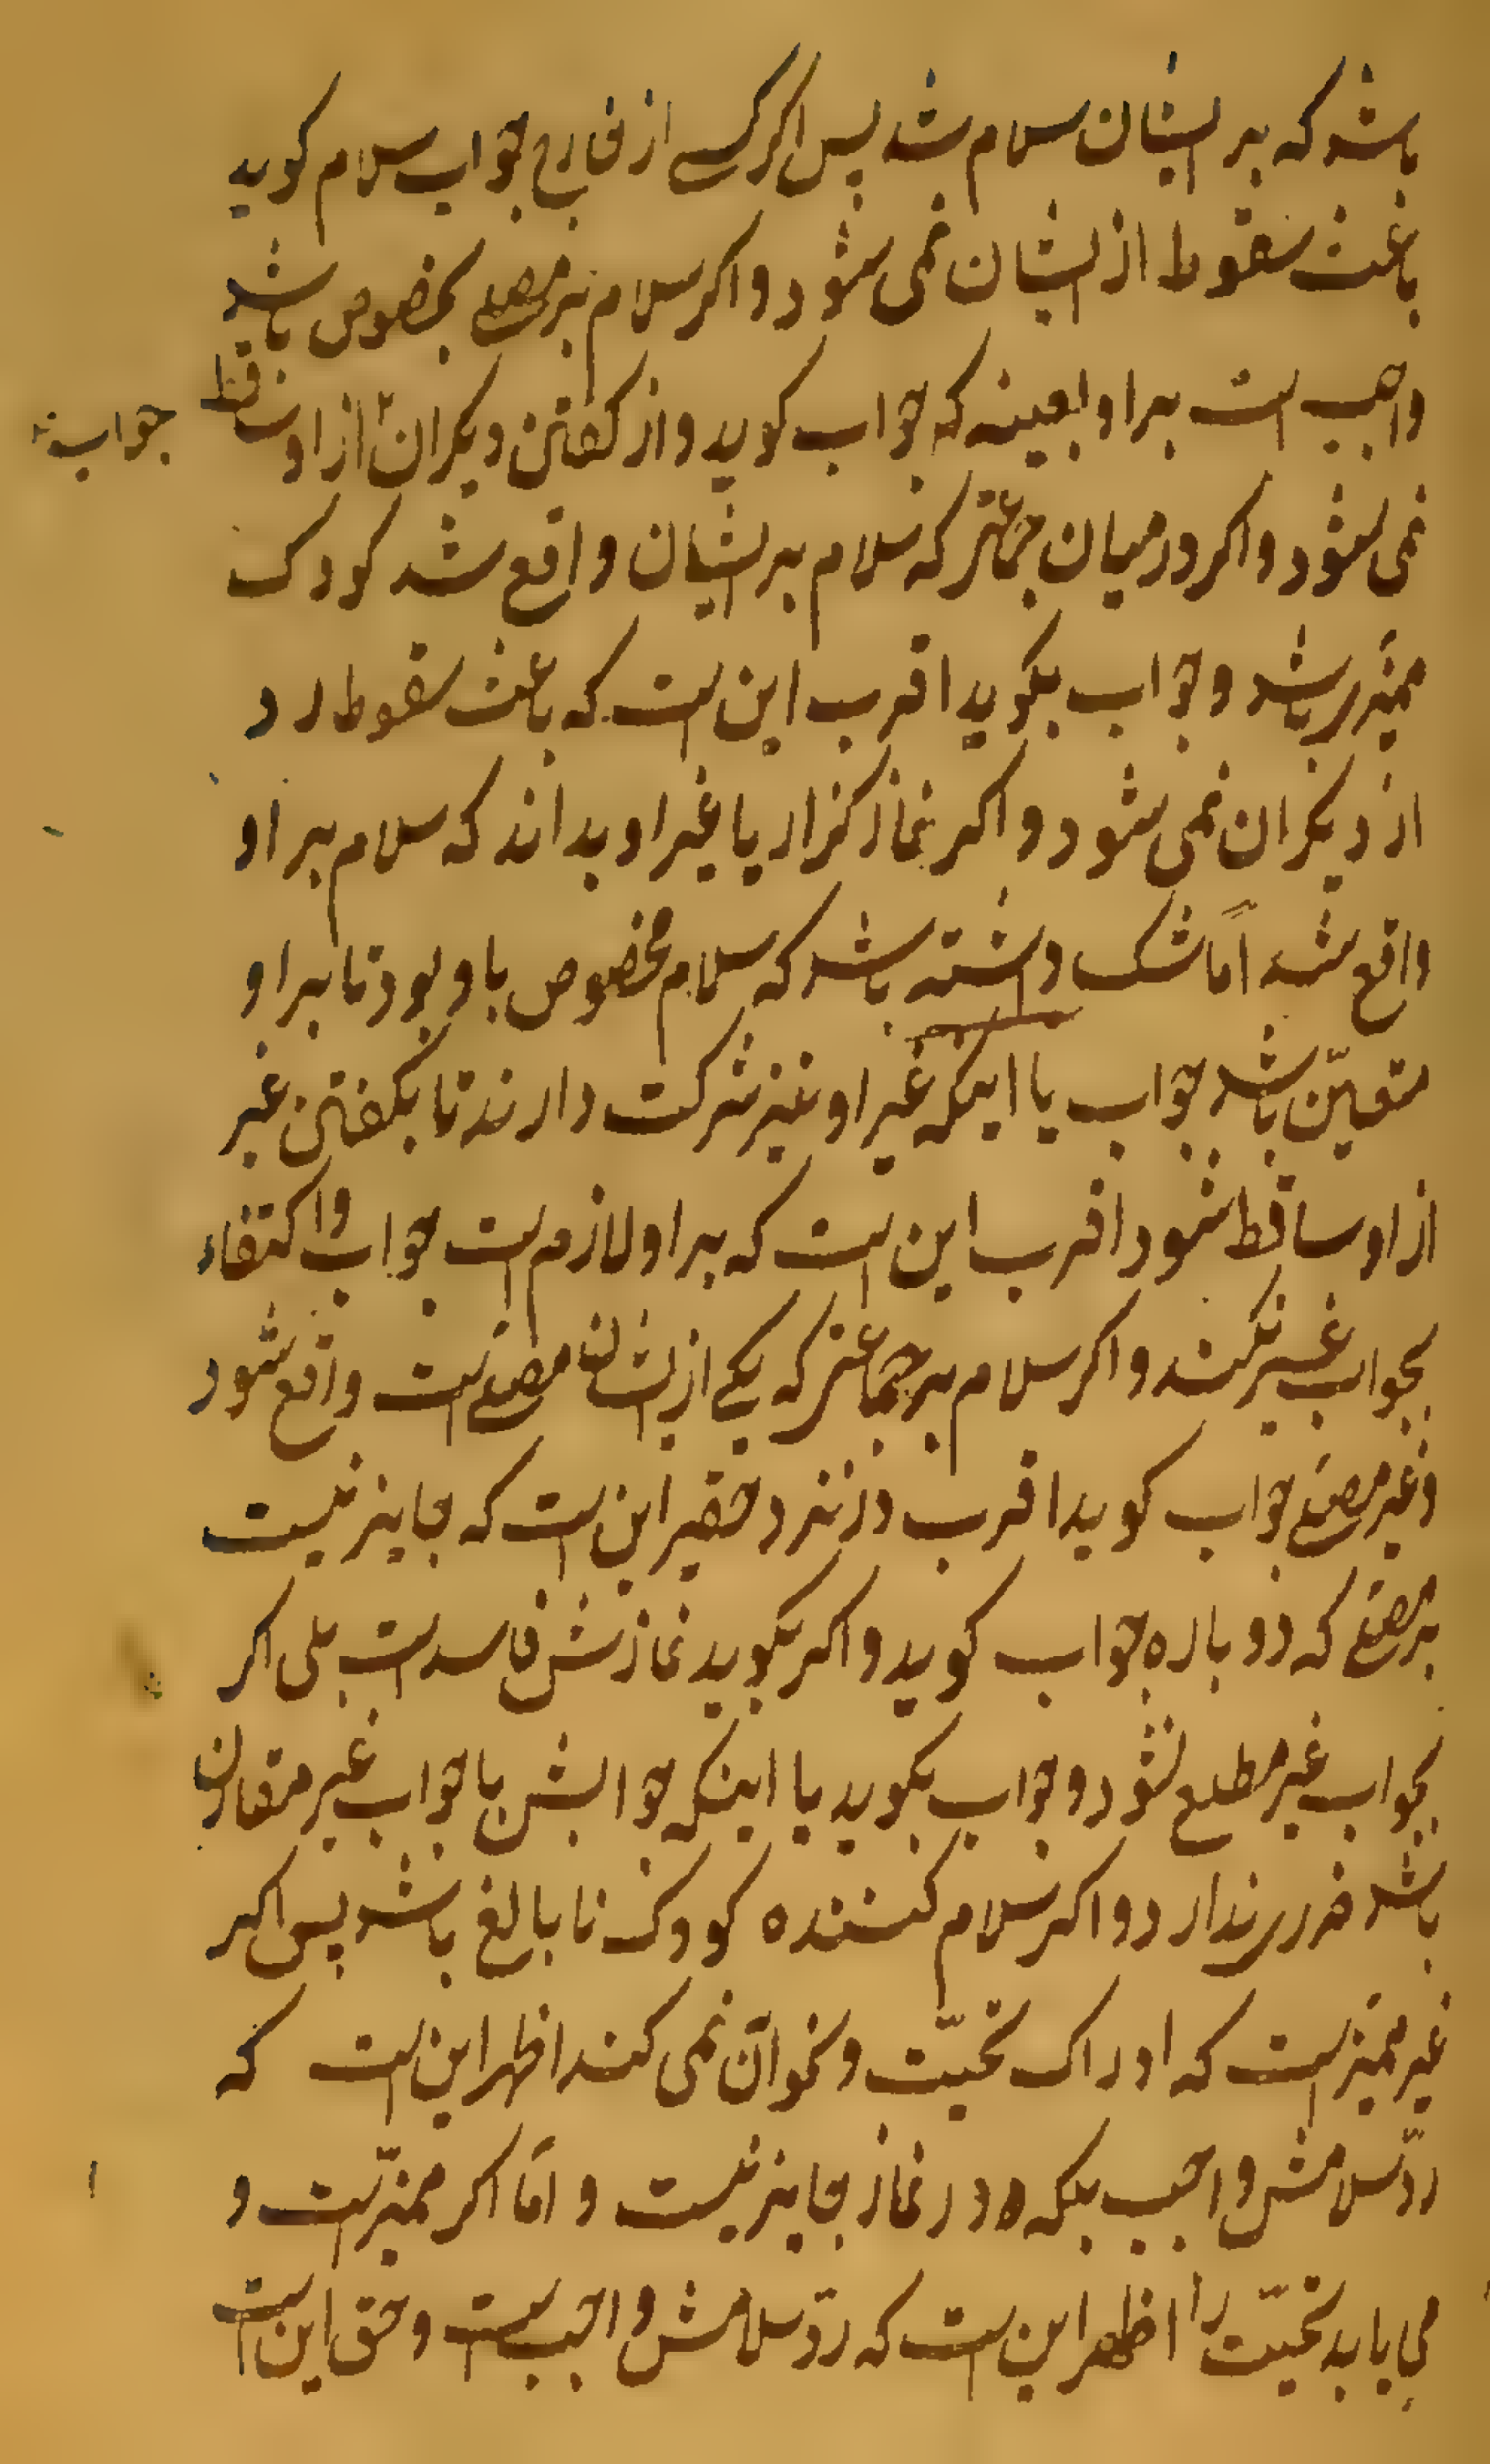 باشد که بر ایشان سلام شد پس اکر کسے از خارج جواب سلام کوید
باعث سقوط از ایشان نمی شود و اکر سلام بر مصلے بخصوص باشد
واجب است بر او بعینه که جواب کوید و از کفتن دیکران از او ساقط
جواب
نمی شود و اکر در میان جماعتی که سلام بر ایشان واقع شد کودک
ممیزی باشد و جواب بکوید اقرب این است که باعث سقوط رد
از دیکران نمی شود و اکر نماز کزار یا غیر او بداند که سلام بر او
واقع شد اما شک داشته باشد که سلام مخصوص باو بود تا بر او
متعیّن باشد جواب یا اینکه غیر او نیز شرکت دارند تا بکفتن غیر
از او ساقط شود اقرب این است که بر او لازم است جواب و اکتفاء
بجواب غیر نکند و اکر سلام بر جماعتی که یکے از ایشان مصلے است واقع شود
و غیر مصلے جواب کوید اقرب در نزد حقیر این است که جایز نیست
بر مصلے که دوباره جواب کوید و اکر بکوید نمازش فاسد است بلی اکر
بجواب غیر مطلع نشود و جواب بکوید یا اینکه جوابش با جواب غیر مقارن
باشد ضرری ندارد و اکر سلام کننده کودک نابالغ باشد پس اکر
غیر ممیز است که ادراک تحیّت و نحو آن نمی کند اظهر این است که
ردّ سلامش واجب بلکه در نماز جایز نیست و امّا اکر ممیّز است و
می یابد تحیّت را اظهر این است که ردّ سلامش واجب است و حق این است